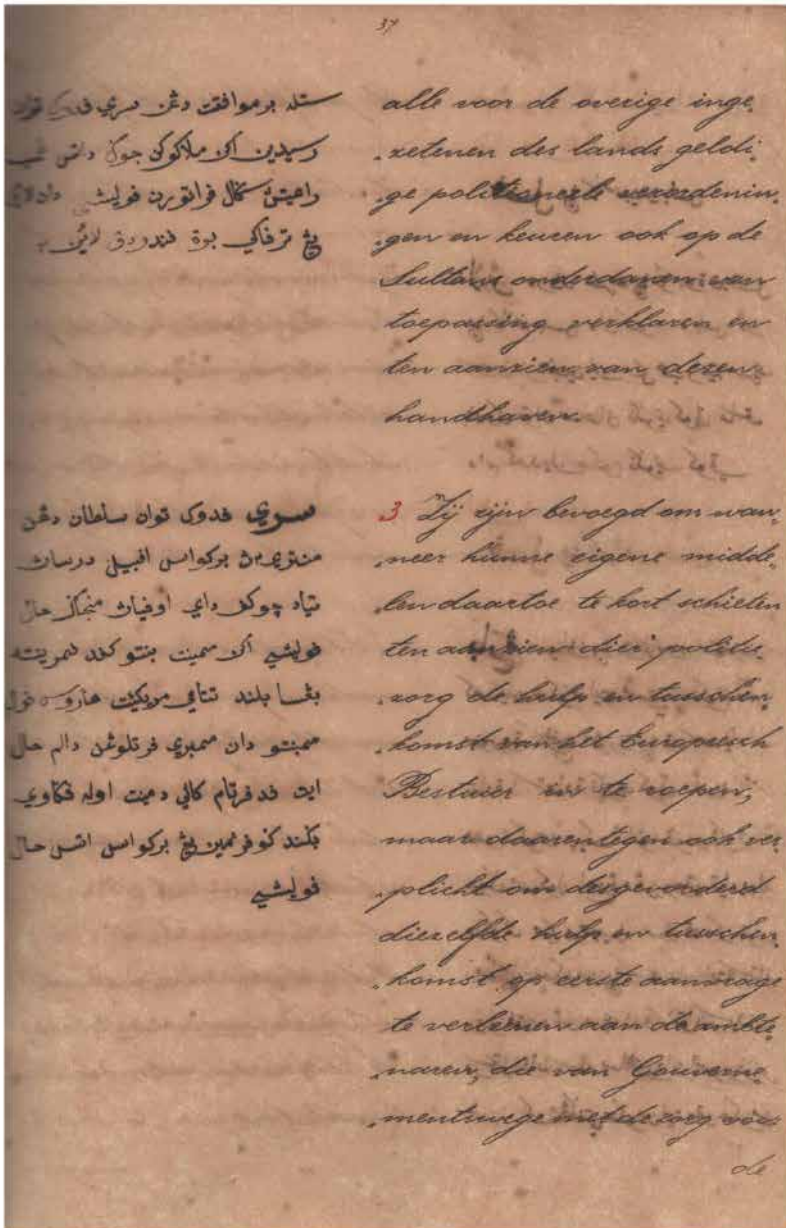 37
ستله برموافقت دڠن سري ڤدوک توان
رسيدين اکن ملاکوکن جوݢ داتس
رعيتڽ سکال ڤراتورن ڤوليسي دان
يڠ ترڤاکي بوة ڤندودق لاين٢
سري ڤدوک توان سلطان دڠن
منتري٢ڽ برکواس اڤبيل دراساڽ
تياد چوکڤ داي اوڤياڽ منجاݢ حال
ڤوليسي اکن ممينت بنتو کڤد ڤمرينته
بڠسا بلند تتاڤي مريکئت هاروسله ڤول
ممبنتو دان ممبري ڤرتلوڠن دالم حال
ايت ڤد ڤرتام کالي دمينت اوله ڤݢاوي
ݢوڤرنمين يڠ برکواس اتس حال
ڤوليسي
alle voor de overige inge-
-zetenen des lands geldi-
-ge politioneele verordenin-
-gen en keuren ook op de
Sultans onderdanen van
toepassing verklaren en
ten aanzien van dezen
handhaven.
3 Zij zijn bevoegd om wan-
-neer hunne eigene midde-
-len daartoe te kort schieten
ten aanzien dier politie-
-zorg de hulp en tusschen-
-komst van het Europeesch
Bestuur in te roepen,
maar daarentegen ook ver-
-plicht om desgevorderd
diezelfde hulp en tusschen-
-komst op eerste aanvrage
te verleenen aan de ambte-
-naren, die van Gouverne-
-mentswege met de zorg voor
de